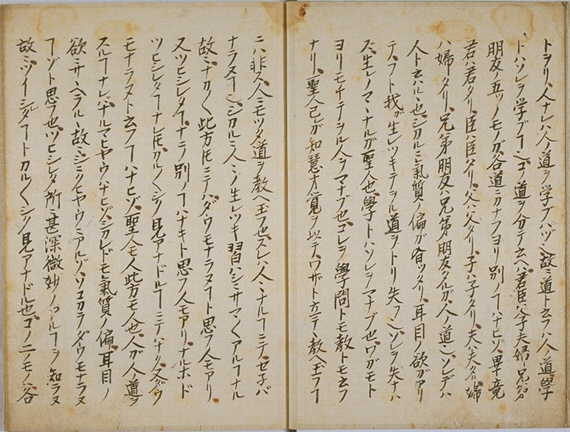 トヲリ、人ナレハ人ノ道ヲ学フハヅ、故ニ道ト云フハ人ノ道、學
トハソレヲ学フヿ也、其道ヲ分テ云ヘハ君臣父子夫婦兄弟
朋友ノ五ツノモノガ、各道ニカナフヨリ別ノヿハナヒゾ、畢竟
君ハ君タリ、臣ハ臣タリ、父ハ父タリ、子ハ子タリ、夫ハ夫タリ、婦
ハ婦タリ、兄弟朋友ハ兄弟朋友タルガ人ノ道也、ソレデハ
人ト云ハルヽ也、シカルニ氣質ノ偏ガ有ツタリ、耳目ノ欲ガアリ
テ、我ガ生レツキテヲル道ヲトリ失フ、ソレヲ失ナハ
ズ、生レノマヽナルガ聖人也、學トハソレヲマナブ也、ワガモト
ヨリモチテヲル人ヲマナブ也、コレヲ學問トモ教トモ云フ
ナリ、聖人己レガ知慧才覺ヲ以テ、ワザト教ヘ玉フヿ
ニハ非ス、人ニモツタ道ヲ教ヘ玉也、スレハ人ハナルヿニテ、セネバ
ナラヌヿ也、シカルニ人ニ生レツキ習ハシサマ〱アルヿナル
故ニ、ナカ〱此方𪜈ニテハカウモナラヌヿト思フ人モアリ、
又ツヒシレタヿナラ別ノヿハナキト思フ人モアリ、ナルホド
ツヒシレタヿナレ𪜈、カル〱シク見アナドルヿニテハナク、又ダウ
モナラヌト云フヿハナヒゾ、聖人モ人此方モ人也、人ガ人ノ道ヲ
スルヿナレバ、ナルマヒヤウハナヒゾ、シカレドモ氣質ノ偏、耳目ノ
欲ニサヘラルヽ故ニ、シニクヒヤウニアルゾ、ソコカラダウモナラヌ
ヿゾト思フ也、ツヒシレタ所ニ甚深微妙ノヿヲ知ラヌ
故ニ、ツイシタヿトカル〱シク見アナドル也、コノ二ツモノ咎